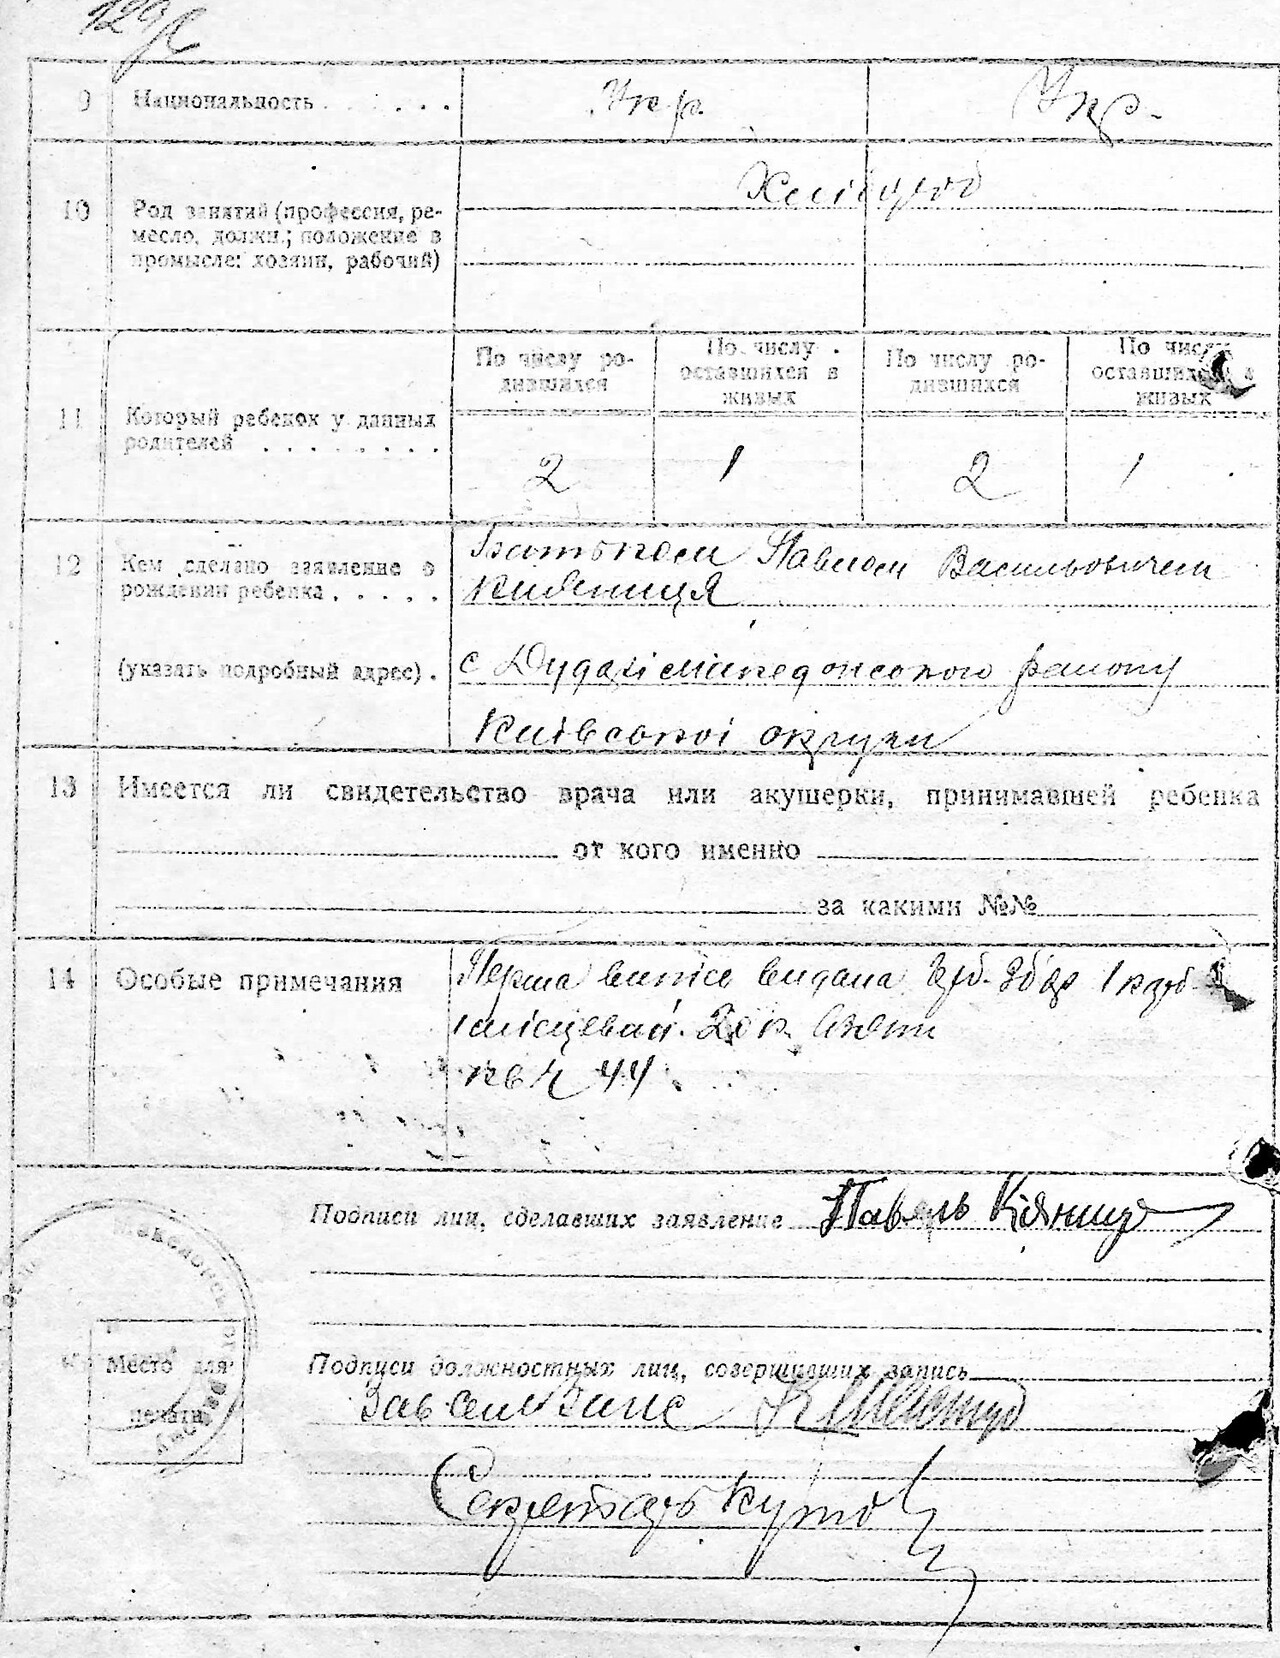 129
9 Национальность . . . . . . Укр. Укр.
10 Род занятий (профессия, ре-
месло, должн.; положение в
промысле: хозяин, рабочий)
Хлібороб
11 Который ребенок у данных
родителей . . . . . . . .
По числу ро-
дившихся
По числу
оставшихся в
живых
По числу ро-
дившихся
По числу
оставшихся в
живых
2 1 2 1
12 Кем сделано заявление о
рождении ребенка . . . . .
Батьком Павлом Васильовичем
Кияниця
(указать подробный адрес) . с Дударі Мікедонського району
Київської округи
13 Имеется ли свидетельство врача или акушерки, принимавшей ребенка
от кого именно
за какими №№
14 Особые примечания
Перша випис видана
місцевий
кв 44.
Подписи лиц, сделавших заявление Павель Кіяниця
Место для
печати
Подписи должностных лиц, совершивших запись
Зав
Секретарь